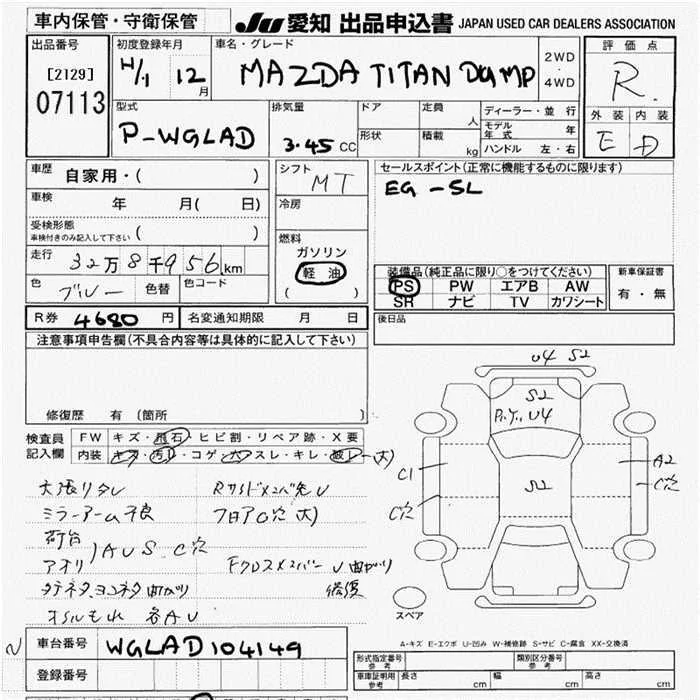 車内保管・守衛保管
JU 愛知 出品申込書 JAPAN USED CAR DEALERS ASSOCIATION
出品番号 初度登録年月 車名・グレード 2WD・4WD 評価点
[2129] 07113 H/1 12月 MAZDA TITAN DUMP R
型式 排気量 ドア 定員 人 ディーラー・並行 外装 内装
P-WGLAD 3.45 CC 形状 積載 kg モデル年式 年 E D
ハンドル 左・右
車歴 自家用・( ) シフト MT セールスポイント(正常に機能するものに限ります)
車検 年 月( 日) 冷房 EG-SL
受検形態 車検付きのみ記入して下さい ( )
走行 32万8千956km 燃料 ガソリン 軽油 ( )
色 ブルー 色替 色コード
装備品(純正品に限り○をつけてください) 新車保証書
PS PW エアB AW 有・無
SR ナビ TV カワシート
R券 4680円 名変通知期限 月 日 後日品
注意事項申告欄(不具合内容等は具体的に記入して下さい)
修復歴 有 (箇所 )
検査員記入欄 FW キズ・飛石・ヒビ割・リペア跡・X要
内装 キズ・汚レ・コゲ・穴・スレ・キレ・破レ (大)
U4 S2
S2
U4
S2
C1
C穴
A2
C穴
ミラーアーム不良 フロア C穴 大)
荷台
アオリ )AUS.C穴 Fクロスメンバー U 曲がり
曲がり 修復
オイルもれ 各AU
スペア
A-キズ E-エクボ U-凹み W-補修跡 S-サビ C-腐食 XX-交換済
車台番号 WGLAD104149
登録番号
形式指定番号 参考 類別区分番号 参考
車庫証明用 参考 長さ cm 幅 cm 高さ cm